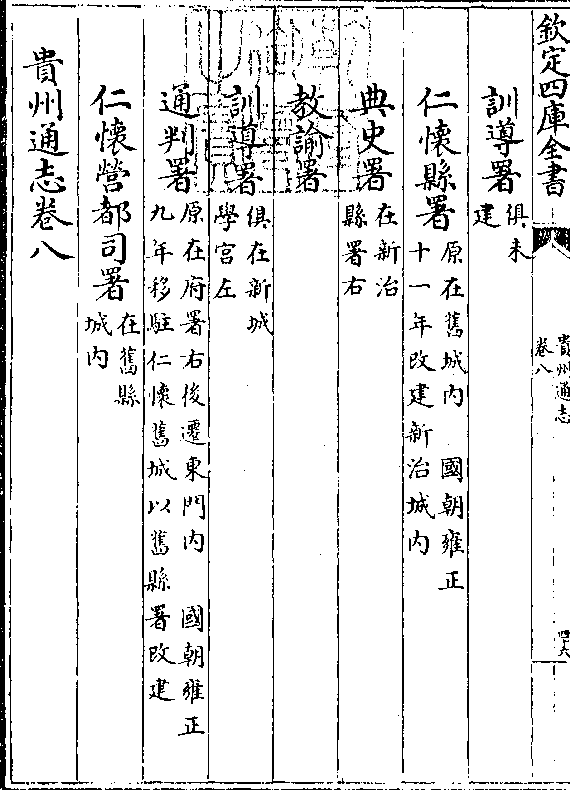 欽定四庫全書
貴州通志
卷八
四六
訓導署俱未
建
仁懷縣署原在舊城內 國朝雍正
十一年改建新治城內
典史署在新治
縣署右
教諭署
訓導署俱在新城
學宮左
通判署原在府署右後遷東門內 國朝雍正
九年移駐仁懷舊城以舊縣署改建
仁懷營都司署在舊縣
城內
貴州通志卷八